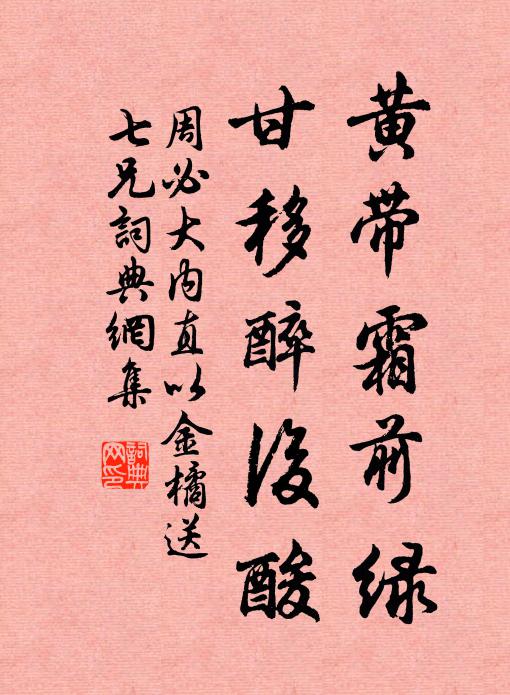 黄带霜前绿
甘移醉後酸
周必大内直以金橘送
七兄詞典網集
詞典
网印